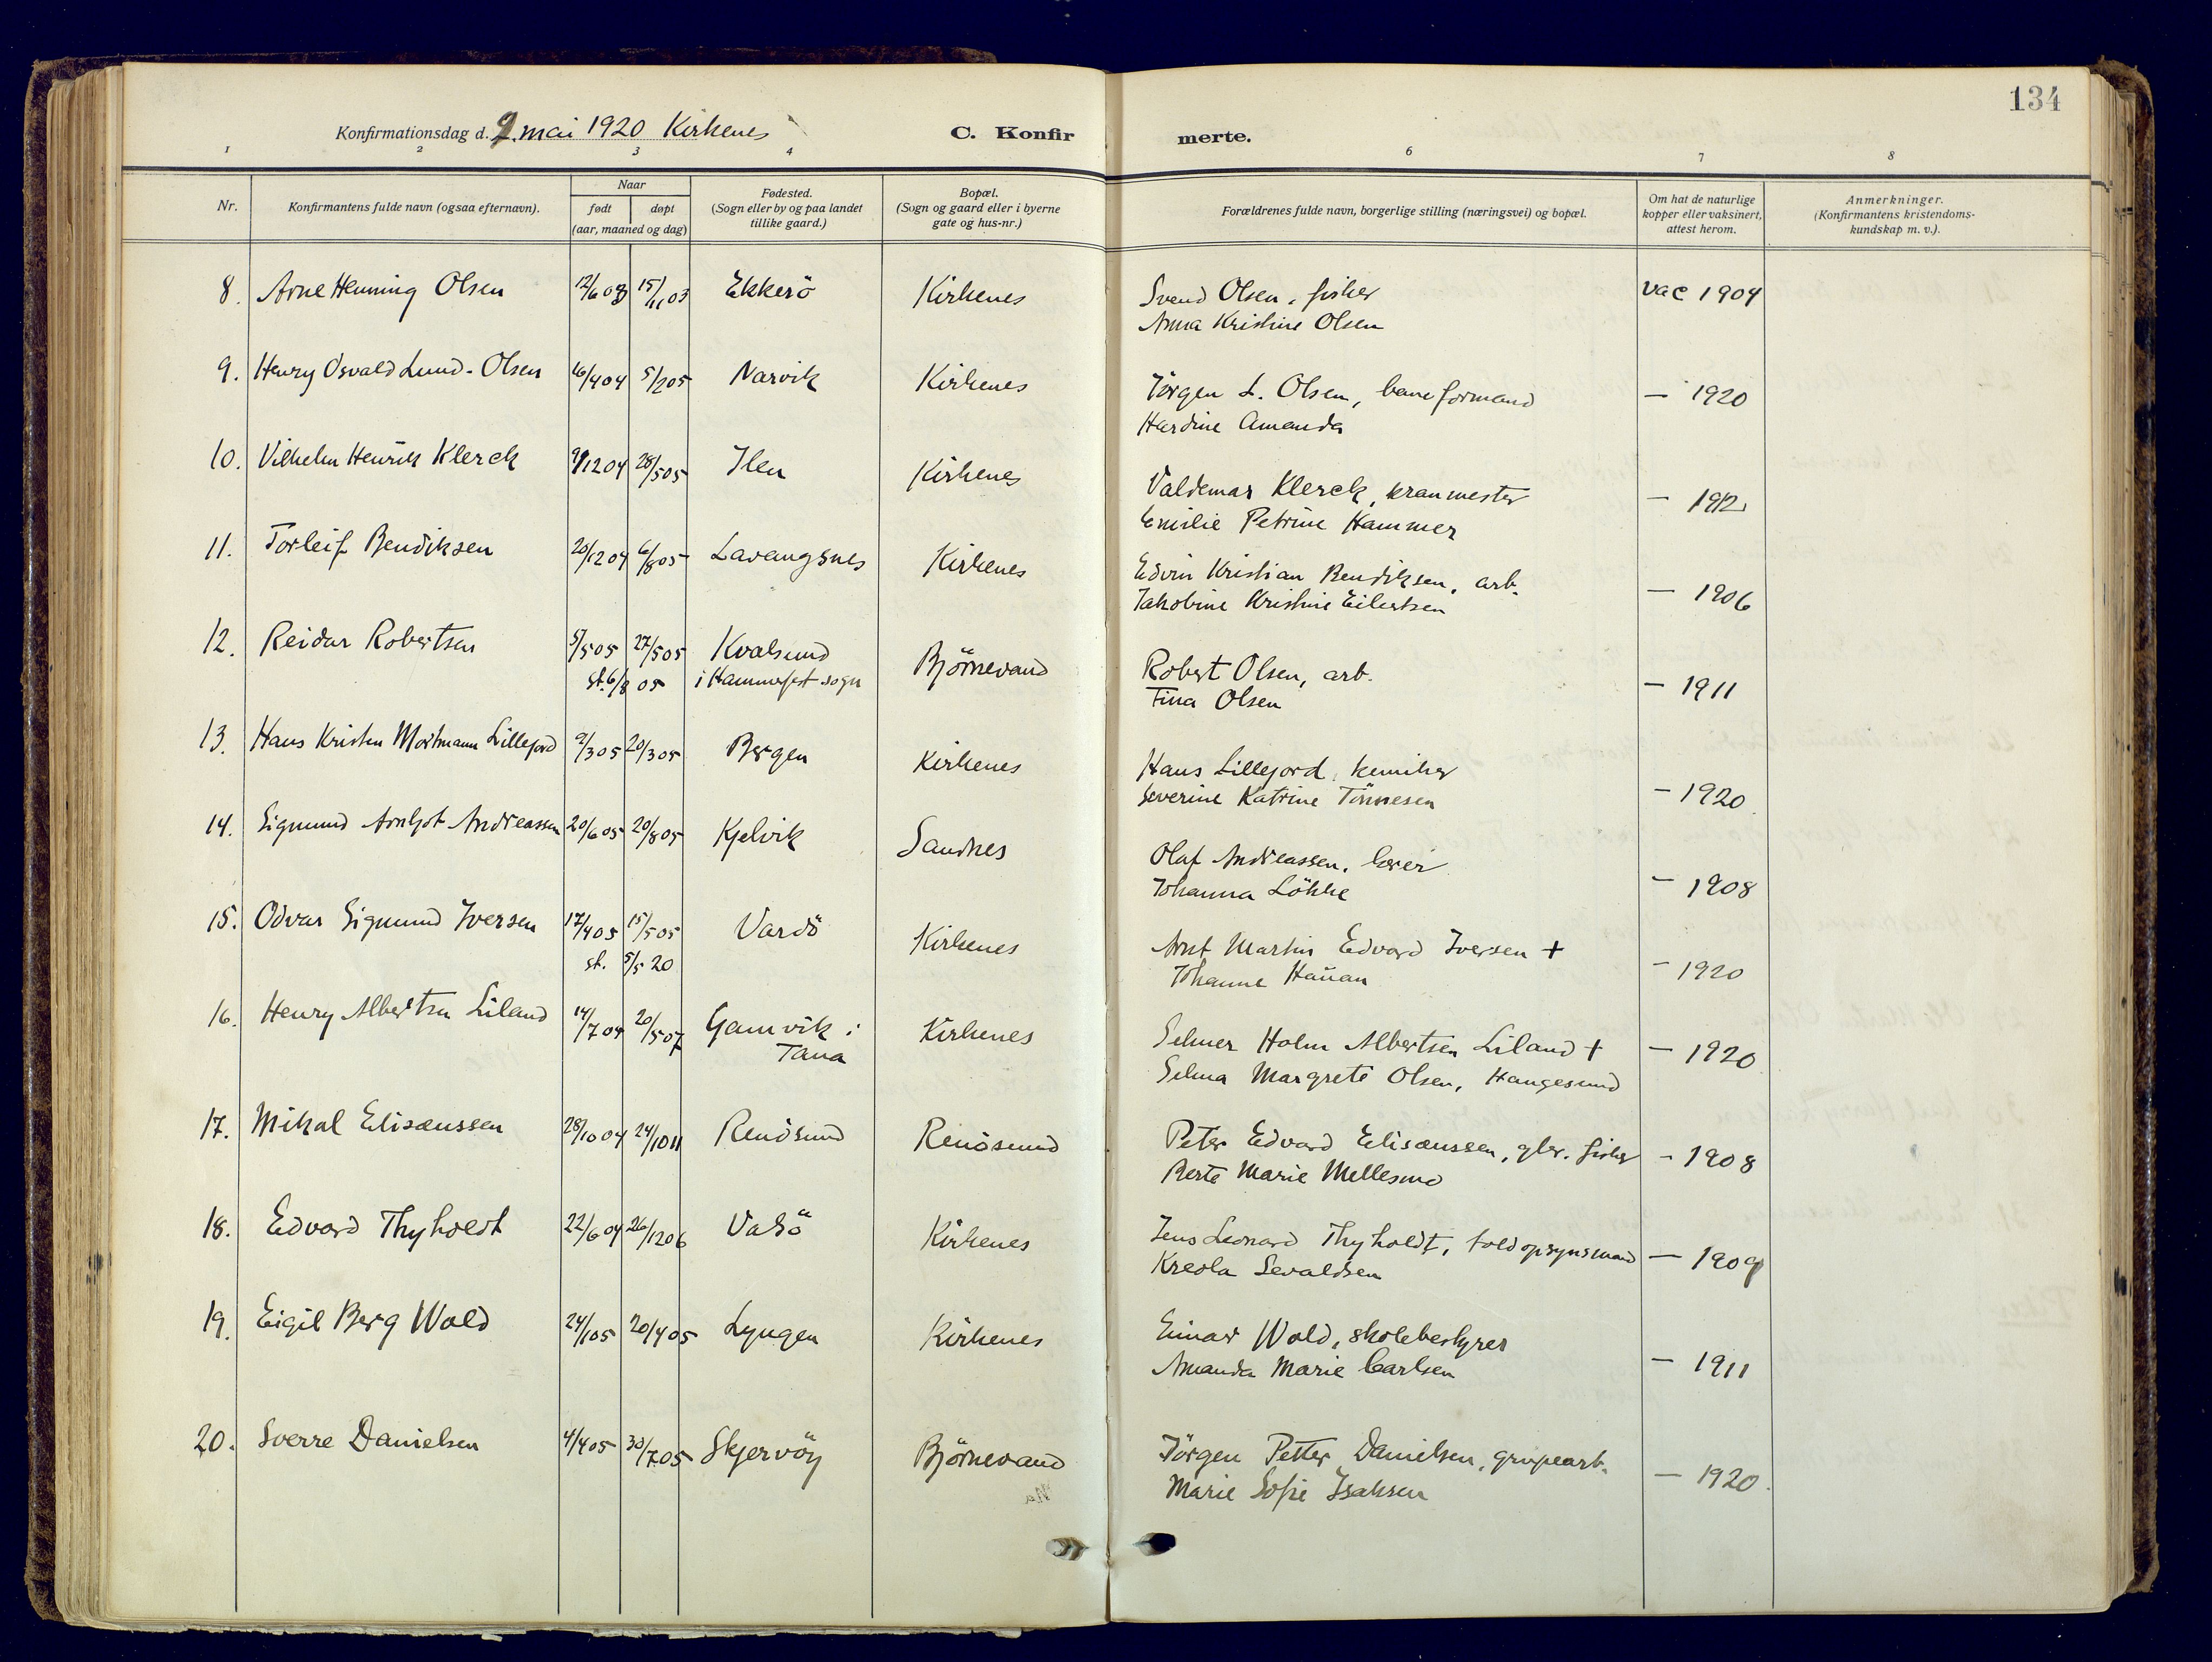 134
Konfirmationsdag d. 9. mai 1920 Kirkenes
C. Konfirmerte.
1 2 3 4 6 7 8
Nr.
Konfirmantens fulde navn (ogsaa efternavn).
Naar
født døpt
(aar, maaned og dag)
Fødested.
(Sogn eller by og paa landet
tillike gaard.)
Bopæl.
(Sogn og gaard eller i byerne
gate og hus-nr.)
Forældrenes fulde navn, borgerlige stilling (næringsvei) og bopæl.
Om hat de naturlige
kopper eller vaksinert,
attest herom.
Anmerkninger.
(Konfirmantens kristendoms-
kundskap m. v.).
8. Arne Henning Olsen 12/6 03 15/11 03 Ekkerö Kirkenes Svend Olsen, fisker vac 1904
Anna Kristine Olsen
9. Henry Osvald Lund-Olsen 16/4 04 5/2 05 Narvik Kirkenes Jörgen L. Olsen, baneformand — 1920
Hardine Amanda
10. Vilhelm Henrik Klerck 9/12 04 28/5 05 Ilen Kirkenes Valdemar Klerck, kranmester — 1912
Emilie Petrine Hammer
11. Torleif Bendiksen 20/12 04 6/8 05 Lavangsnes Kirkenes Edvin Kristian Bendiksen, arb. — 1906
Jakobine Kristine Eilertsen
12. Reidar Robertsen 5/5 05 27/5 05 Kvalsund Björnevand Robert Olsen, arb. — 1911
st. 6/8 05 i Hammerfest sogn Tina Olsen
13. Hans Kristen Mortmann Lillejord 9/3 05 20/3 05 Bergen Kirkenes Hans Lillejord, kemiker — 1920
Severine Katrine Tönnesen
14. Sigmund Arnljot Andreassen 20/6 05 20/8 05 Kjelvik Sandnes Olaf Andreassen, lærer — 1908
Johanna Lökke
15. Odvar Sigmund Iversen 17/4 05 15/5 05 Vardö Kirkenes Arnt Martin Edvard Iversen + — 1920
st. 5/5 20 Johanne Hauan
16. Henry Albertsen Liland 14/7 04 20/5 07 Gamvik i Kirkenes Selmer Holm Albertsen Liland + — 1920
Tana Selma Margrete Olsen, Haugesund
17. Mikal Elisæussen 28/10 04 24/10 11 Renösund Renösund Peter Edvard Elisæussen, gbr. fisker — 1908
Berte Marie Mellesmo
18. Edvard Thyholdt 22/6 04 26/12 06 Vadsö Kirkenes Jens Leonard Thyholdt, toldopsynsmand — 1909
Kreola Sevaldsen
19. Eigil Berg Wold 24/1 05 20/4 05 Lyngen Kirkenes Einar Wold, skolebestyrer — 1911
Amanda Marie Carlsen
20. Sverre Danielsen 4/4 05 30/7 05 Skjervöy Björnevand Jörgen Petter Danielsen, grupearb. — 1920.
Marie Sofie Isaksen